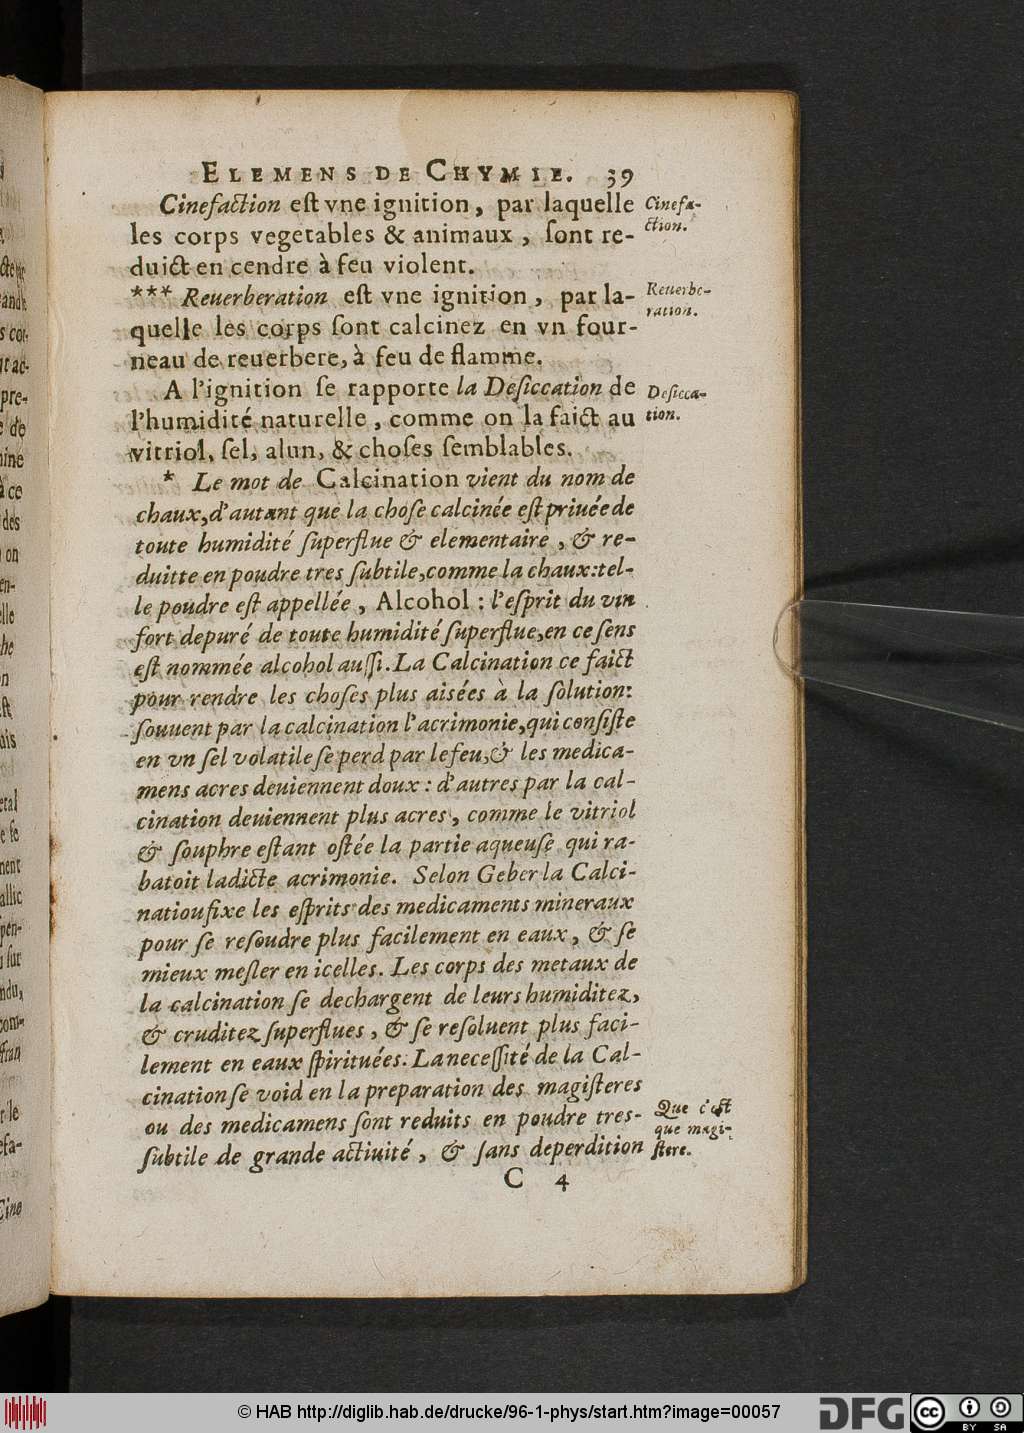 ELEMENS DE CHYMIE. 39
Cinefaction eſt vne ignition, par laquelle
les corps vegetables & animaux, ſont re-
duict en cendre à feu violent.
*** Reuerberation eſt vne ignition, par la-
quelle les corps ſont calcinez en vn four-
neau de reuerbere, à feu de flamme.
A l'ignition ſe rapporte la Deſiccation de
l'humidité naturelle, comme on la faict au
vitriol, ſel, alun, & choſes ſemblables.
* Le mot de Calcination vient du nom de
chaux, d'autant que la choſe calcinée eſt priuée de
toute humidité ſuperflue & elementaire, & re-
duitte en poudre tres ſubtile, comme la chaux: tel-
le poudre eſt appellée, Alcohol: l'eſprit du vin
fort depuré de toute humidité ſuperflue, en ce ſens
eſt nommée alcohol auſſi. La Calcination ce faict
pour rendre les choſes plus aisées à la ſolution:
ſouuent par la calcination l'acrimonie, qui conſiſte
en vn ſel volatile ſe perd par le feu, & les medica-
mens acres deuiennent doux: d'autres par la cal-
cination deuiennent plus acres, comme le vitriol
& ſouphre eſtant oſtée la partie aqueuſe qui ra-
batoit ladicte acrimonie. Selon Geber la Calci-
natiou fixe les eſprits des medicaments mineraux
pour ſe reſoudre plus facilement en eaux, & ſe
mieux meſler en icelles. Les corps des metaux de
la calcination ſe dechargent de leurs humiditez,
& cruditez ſuperflues, & ſe reſoluent plus faci-
lement en eaux ſpirituées. La neceſſité de la Cal-
cination ſe void en la preparation des magiſteres
ou des medicamens ſont reduits en poudre tres-
ſubtile de grande actiuité, & ſans deperdition
C 4
Cinefa-
ction.
Reuerbe-
ration.
Deſicca-
tion.
Que c'eſt
que magi-
ſtere.
© HAB http://diglib.hab.de/drucke/96-1-phys/start.htm?image=00057
DFG
cc
BY SA